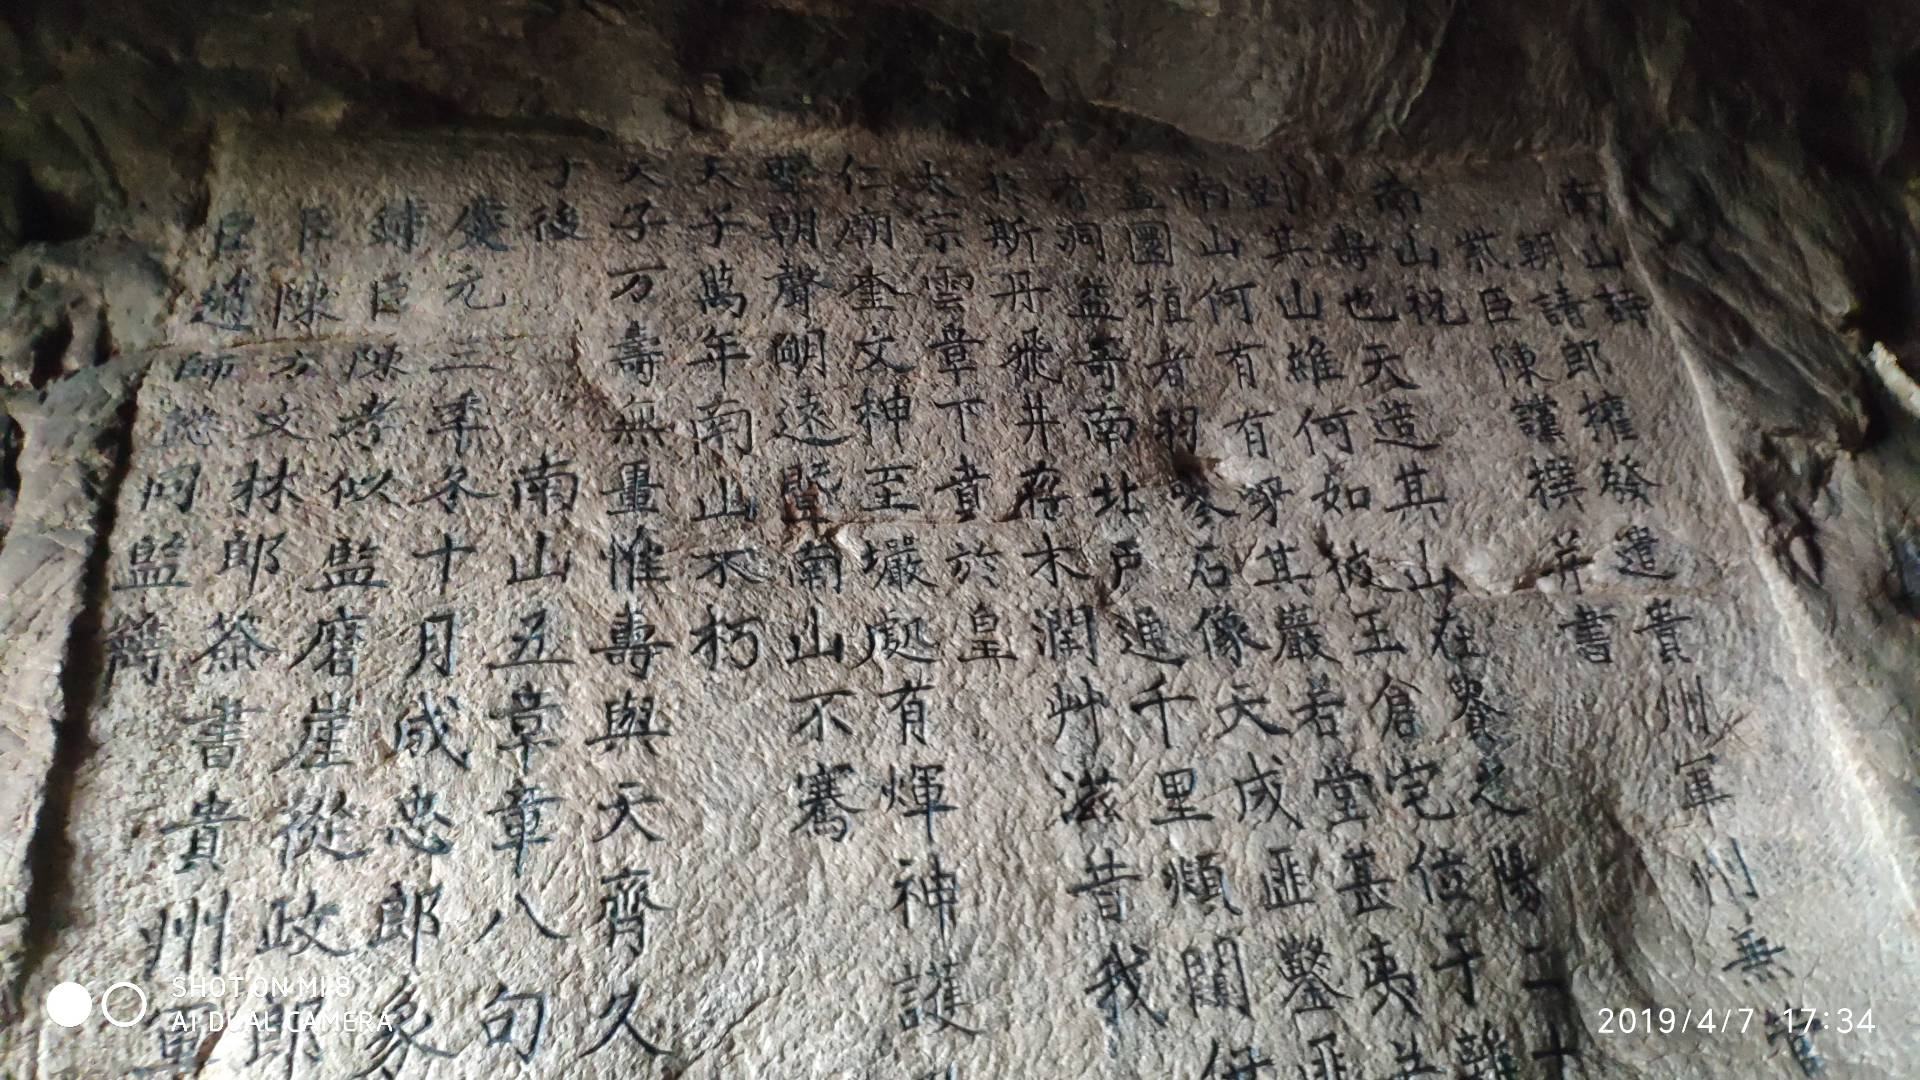 南山詩
朝請郎權發遣貴州軍州兼管
臣陳讜撰并書
南山祝
壽也天造其山在鬱之陽二十
其山維何如彼玉倉宅位于離
南山何有有穹其巖若堂甚夷
圜植者羽寥石像天成匪鑿匪
有洞南北戶通千里頫聞
於斯丹飛井存木潤艸滋昔我
太宗雲章下賁於皇
仁廟奎文神至巖處有煇神護
聖朝聲明遠曁南山不騫
天子萬年南山不朽
天子万壽無畺惟壽與天齊久
南山五章章八句
後
慶元三年冬十月成忠郎
臣陳似監磨崖從政郎
臣陳文林郎簽書貴州
臣趙師同監鐫
SHOT ON MI 8
AI DUAL CAMERA
2019/4/7 17:34